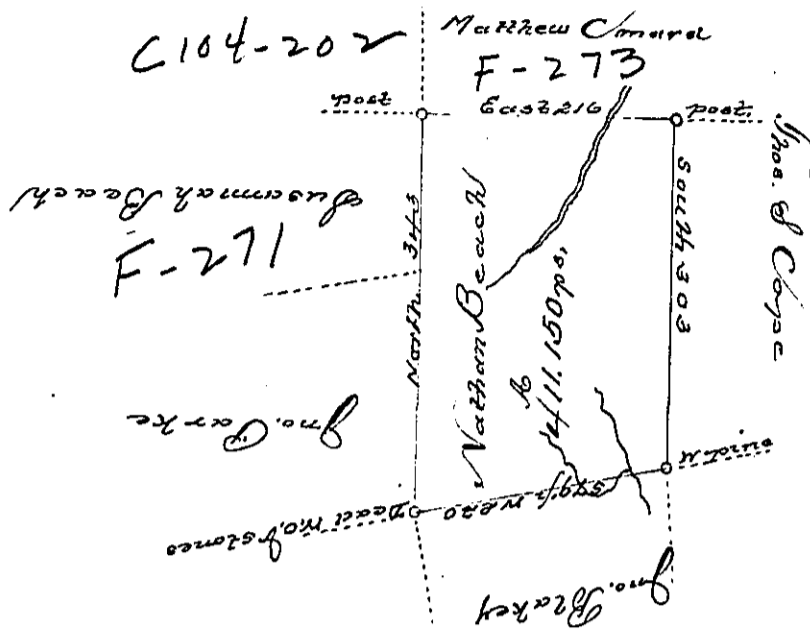 C104-202
Matthew Cmara
F-273
post
East 216
post
Thos. S Cope
Susannah Beach
F-271
North 343
South 303
Nathan Beach
411.150 ps.
Jno. Parke
W.pine
S79½ W 220
Dead W.O. & stones
Jno. Blakey